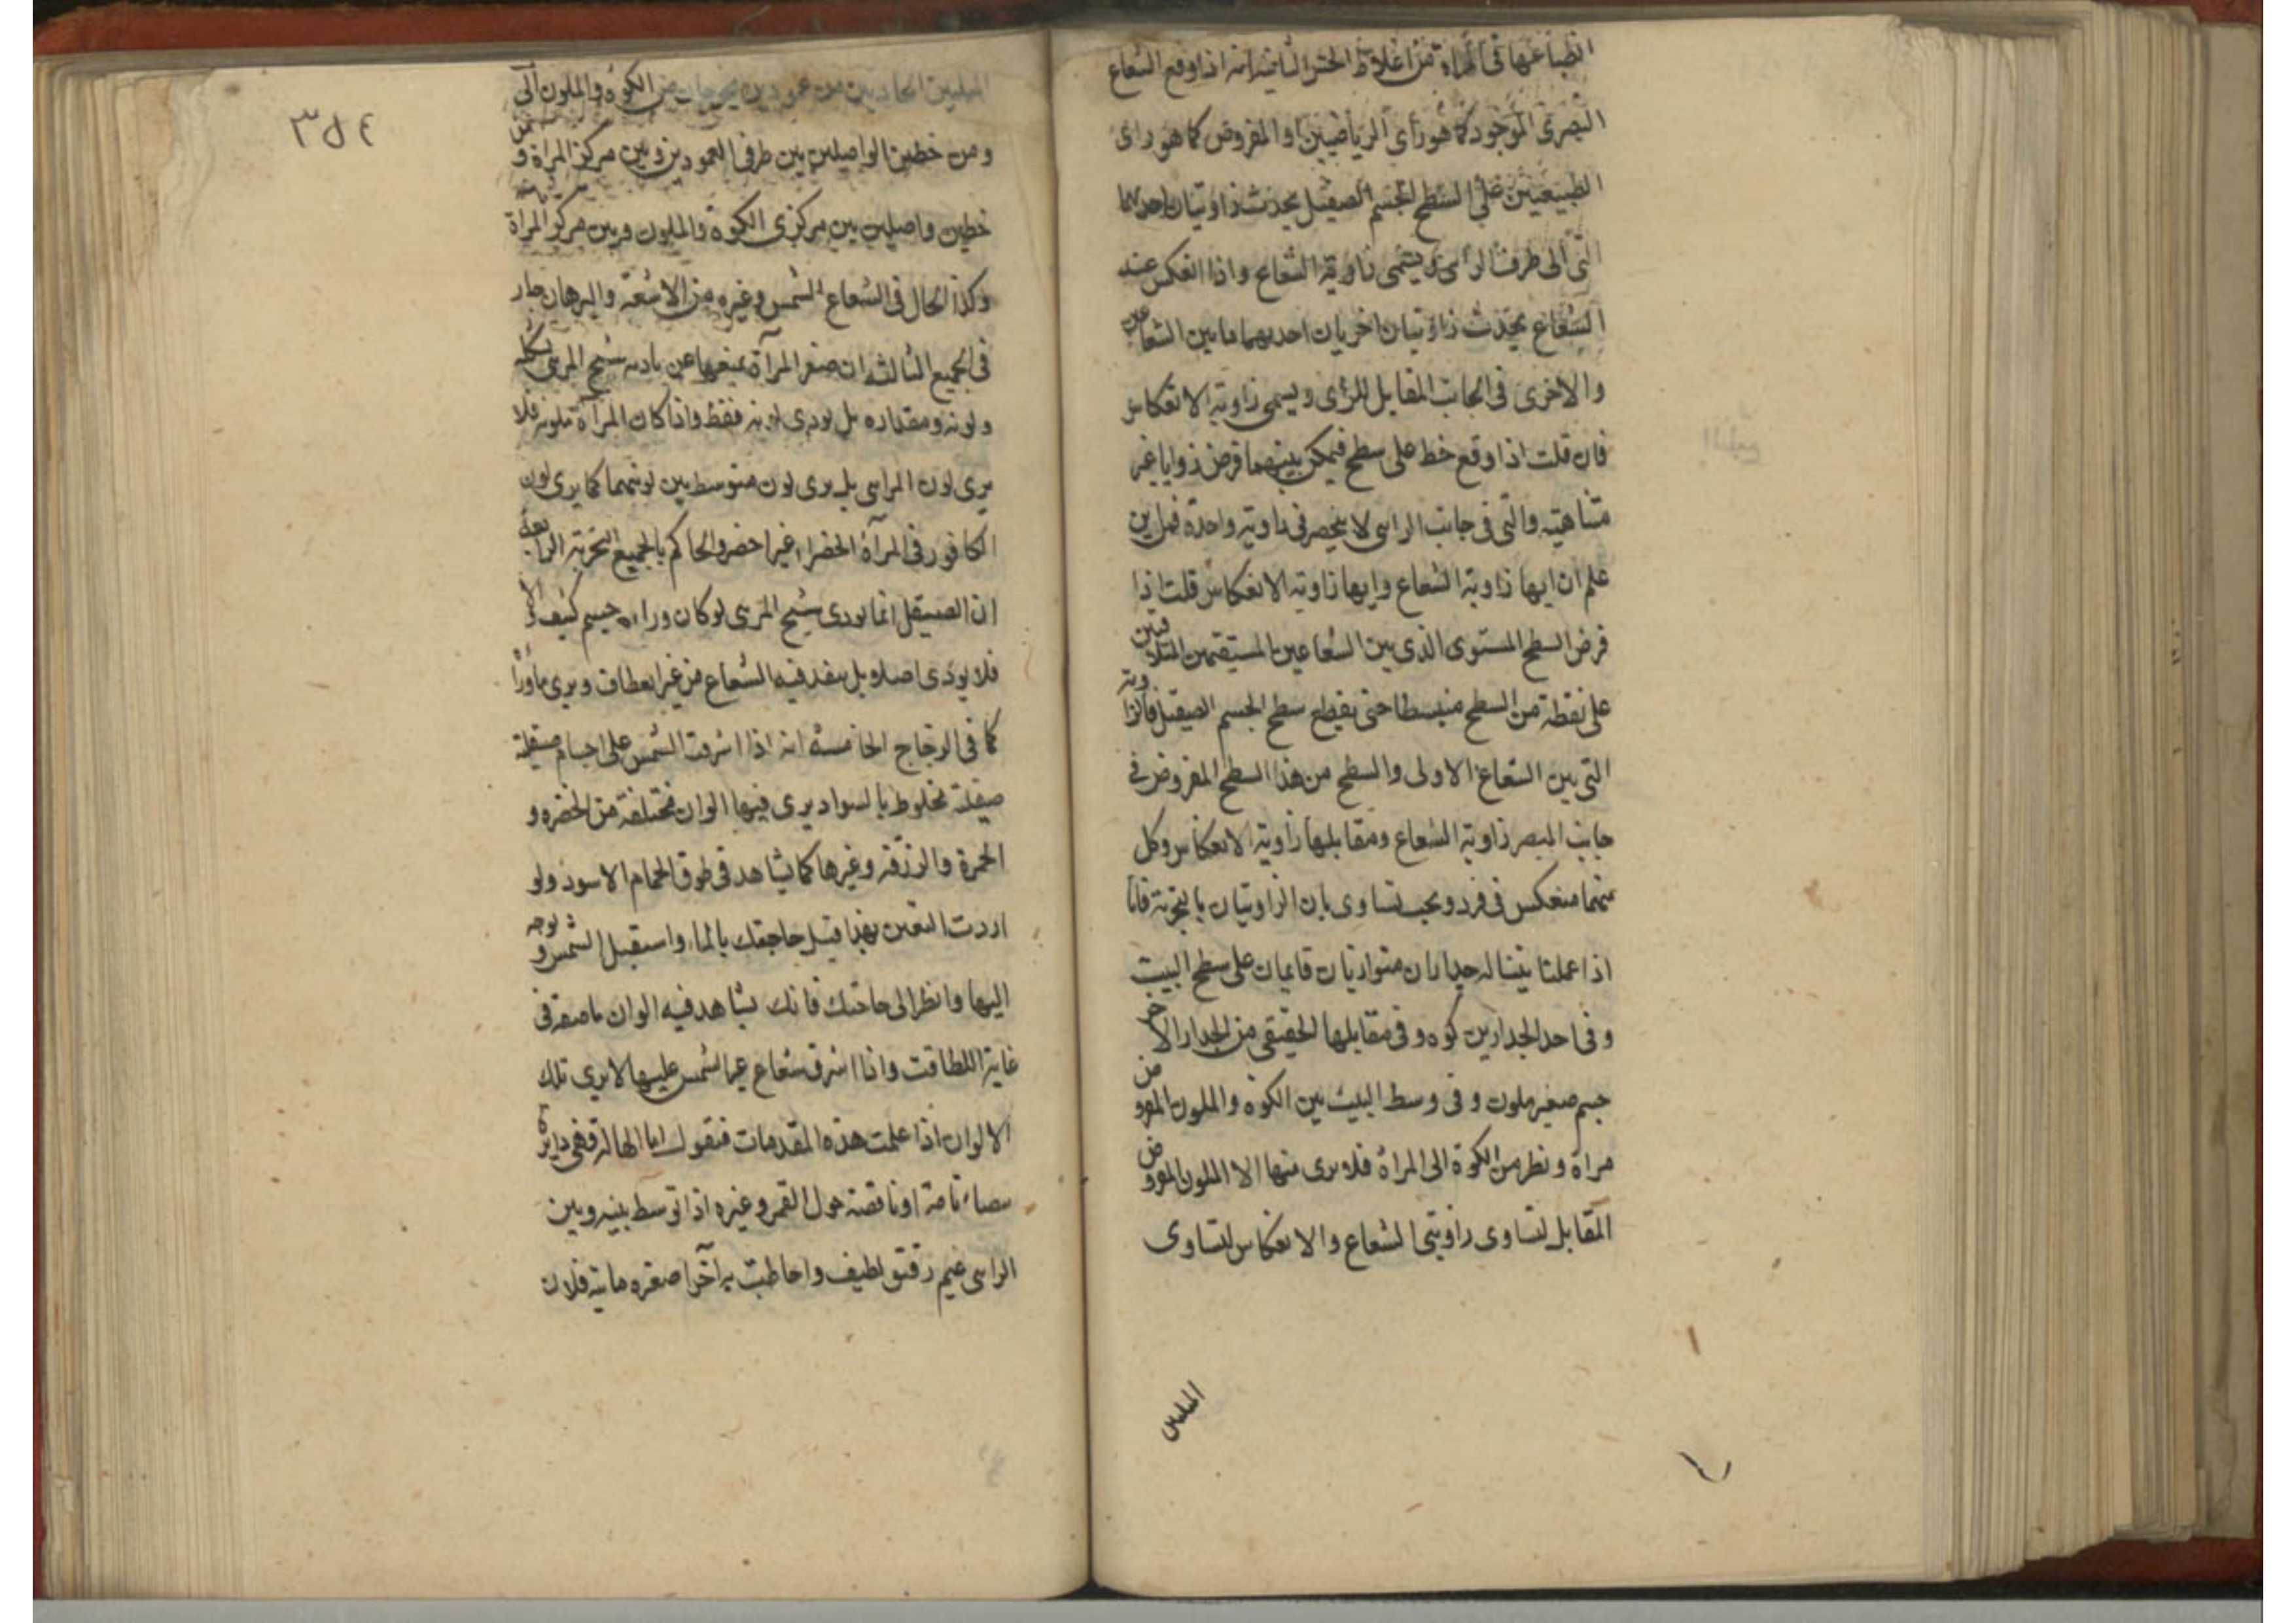 انطباعها فى المراة من اغلاط الحس الثانيه انه اذا وقع الشعاع
البصرى الموجود كما هو راى الرياضيين او المفروض كما هو راى
الطبيعيين على السطح الجسم الصيقل يحدث زاويتان احديهما
التى الى طرف الرائى ويسمى زاوية الشعاع واذا انعكس عند
الشعاع يحدث زاويتان اخريان احديهما ما بين الشعاعين
والاخرى فى الجانب المقابل للرائى ويسمى زاوية الانعكاس
فان قلت اذا وقع خط على سطح فيمكن بينهما فرض زوايا غير
متناهيته والتى فى جانب الراىى لا ينحصر فى زاوية واحدة فمن اين
علم ان ايها زاوية الشعاع وايها زاوية الانعكاس قلت اذا
فرض السطح المستوى الذى بين الشعاعين المستقيمين المتلاقين
على نقطة من السطح منبسطا حتى يقطع سطح الجسم الصيقل فالزاوية
التى بين الشعاع الاولى والسطح من هذا السطح المفروض فى
جانب المبصر زاوية الشعاع ومقابلها زاوية الانعكاس وكل
منهما منعكس فى فرد ويجب تساوى بان الزاويتان بالتجربة فانا
اذا عملنا بيتا له جداران متوازيان قايمان على سطح البيت
وفى احد الجدارين كوه وفى مقابلها الحقيقى من الجدار الاخر
جسم صغير ملون وفى وسط البيت بين الكوه والملون المفروض
مراة ونظر من الكوة الى المراة فلا يرى منها الا الملون المفروض
المقابل لتساوى زاويتى الشعاع والانعكاس لتساوى
المثلثين
٣٥٤
المثلثين الحادثين من عمودين يخرجان من الكوة والملون الى
ومن خطين الواصلين بين طرفى العمودين وبين مركز المراة و
خطين واصلين بين مركزى الكوة والملون وبين مركز المراة
وكذا الحال فى الشعاع الشمس وغيره من الاشعة والبرهان جار
فى الجميع الثالثه ان صغر المرآة يمنعها عن تاديه شبح المرئى بشكله
ولونه ومقداره بل يودى لونه فقط واذا كان المرآة ملونه فلا
يرى لون الراىى بل يرى لون متوسط بين لونيهما كما يرى لون
الكافور فى المرآة الخضرا غير اخضر والحاكم بالجميع التجربة الرابعة
ان الصيقل انما يودى شبح المرئى لو كان وراه جسم كثيف والا
فلا يودى اصلا بل ينفذ فيه الشعاع من غير انعطاف ويرى ماوراه
كما فى الزجاج الخامسه انه اذا اشرقت الشمس على اجسام صيقلة
صيقلة مخلوط بالسواد يرى فيها الوان مختلفة من الخضره و
الحمرة والزرقه وغيرها كما يشاهد فى طوق الحمام الاسود ولو
اردت اليقين بهذا فبل حاجبك بالماء واستقبل الشمس وتوجه
اليها وانظر الى حاجبك فانك تشاهد فيه الوان ناصعة فى
غاية اللطافت واذا اشرق شعاع غير الشمس عليها لا يرى تلك
الالوان اذا علمت هذه المقدمات فنقول اما الهالة فهى دايرة
بيضاء تامة او ناقصة حول القمر وغيره اذا توسط بينه وبين
الراىى غيم رقيق لطيف واحاطت به اجزا صغيره مائية فلان